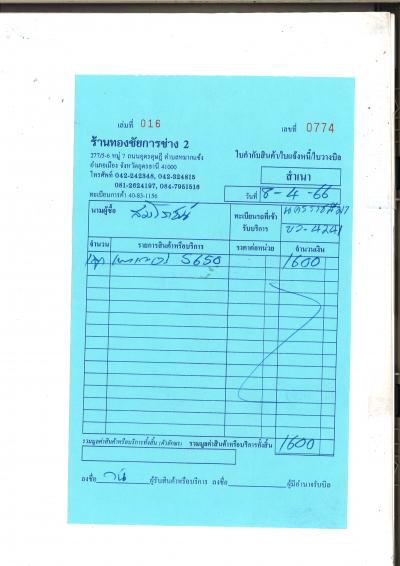 เล่มที่ 016 เลขที่ 0774
ร้านทองชัยการช่าง 2
277/5-6 หมู่ 7 ถนนอุดรดุษฎี ตำบลหมากแข้ง
อำเภอเมือง จังหวัดอุดรธานี 41000
โทรศัพท์ 042-242348, 042-324815
081-2624197, 084-7951516
ทะเบียนการค้า 40-83-1156
ใบกำกับสินค้า/ใบแจ้งหนี้/ใบวางบิล
สำเนา
วันที่ 8-4-66
นามผู้ซื้อ
ทะเบียนรถที่เข้ารับบริการ นครราชสีมา
4241
จำนวน รายการสินค้าหรือบริการ ราคาต่อหน่วย จำนวนเงิน
5650 1600
รวมมูลค่าสินค้าหรือบริการทั้งสิ้น (ตัวอักษร) รวมมูลค่าสินค้าหรือบริการทั้งสิ้น 1600
ลงชื่อ ผู้รับสินค้าหรือบริการ ลงชื่อ ผู้มีอำนาจรับบิล